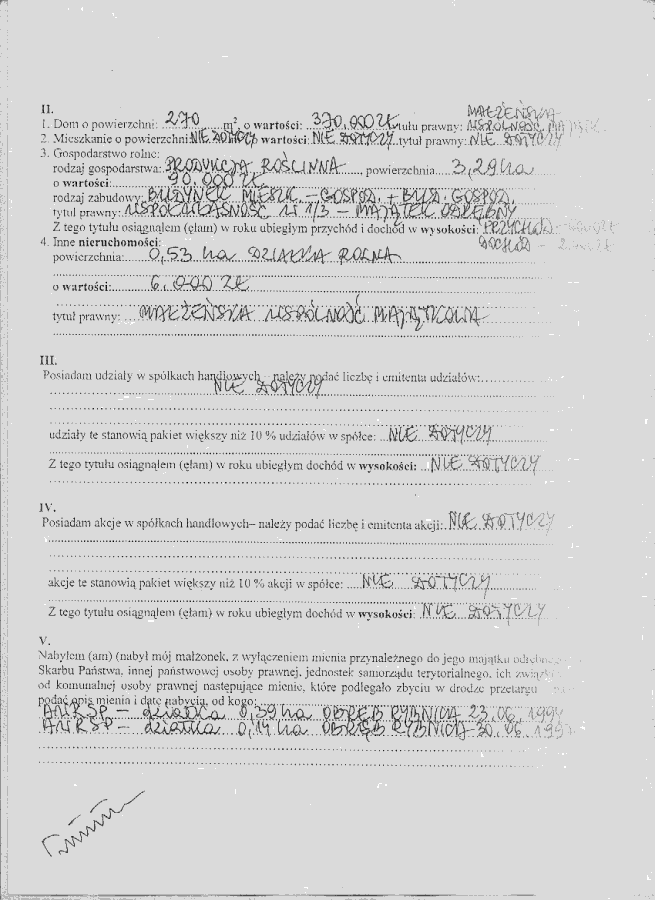 II.
1. Dom o powierzchni: 270 m², o wartości: 370.000 zł tytuł prawny: MAŁŻEŃSKA WSPÓLNOŚĆ
2. Mieszkanie o powierzchni: NIE DOTYCZY o wartości: NIE DOTYCZY tytuł prawny: NIE DOTYCZY
3. Gospodarstwo rolne:
rodzaj gospodarstwa: PRODUKCJA ROŚLINNA, powierzchnia 3,29 ha
o wartości: 90.000 zł
rodzaj zabudowy: BUDYNEK MIESZK. – GOSPOD. + BUD. GOSPOD.
tytuł prawny: WSPÓŁWŁASNOŚĆ W 1/3 – MAJĄTEK ODRĘBNY
Z tego tytułu osiągnąłem (ęłam) w roku ubiegłym przychód i dochód w wysokości: PRZYCHÓD
4. Inne nieruchomości: DOCHÓD
powierzchnia: 0,53 ha DZIAŁKA ROLNA
o wartości: 6.000 ZŁ
tytuł prawny: MAŁŻEŃSKA WSPÓLNOŚĆ MAJĄTKOWA
III.
Posiadam udziały w spółkach handlowych – należy podać liczbę i emitenta udziałów:
NIE DOTYCZY
udziały te stanowią pakiet większy niż 10 % udziałów w spółce: NIE DOTYCZY
Z tego tytułu osiągnąłem (ęłam) w roku ubiegłym dochód w wysokości: NIE DOTYCZY
IV.
Posiadam akcje w spółkach handlowych– należy podać liczbę i emitenta akcji: NIE DOTYCZY
akcje te stanowią pakiet większy niż 10 % akcji w spółce: NIE DOTYCZY
Z tego tytułu osiągnąłem (ęłam) w roku ubiegłym dochód w wysokości: NIE DOTYCZY
V.
Nabyłem (am) (nabył mój małżonek, z wyłączeniem mienia przynależnego do jego majątku
Skarbu Państwa, innej państwowej osoby prawnej, jednostek samorządu terytorialnego, ich
od komunalnej osoby prawnej następujące mienie, które podlegało zbyciu w drodze przetargu
podać opis mienia i datę nabycia, od kogo:
ANRSP – działka 0,39 ha OBRĘB RYBNICA 23.06.
ANRSP – działka 0,14 ha OBRĘB RYBNICA 30.06